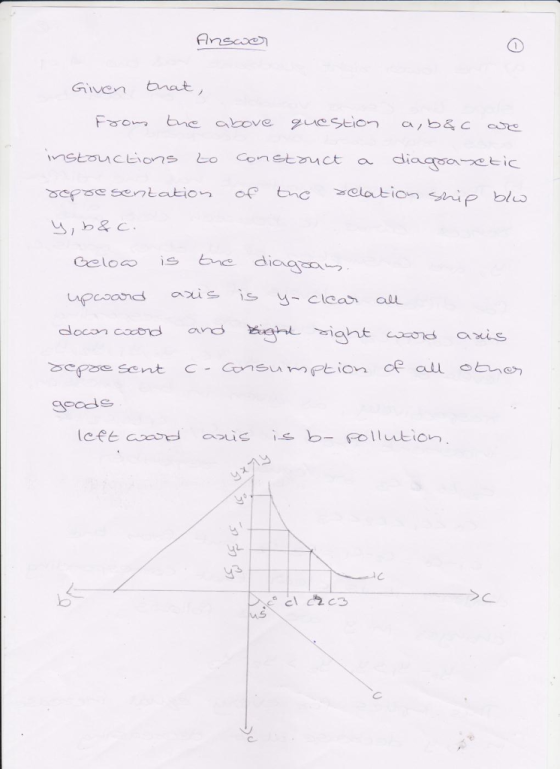 Answer
1
Given that,
From the above question a, b & c are
instructions to construct a diagrametic
representation of the relation ship b/w
y, b & c.
Below is the diagram.
upward axis is y-clear all
downword and right right word axis
represent c - consumption of all other
goods.
left ward axis is b - pollution.
y
y*
y°
y1
y2
y3
IC
b
c° c1 c2 c3
c
45°
c
c